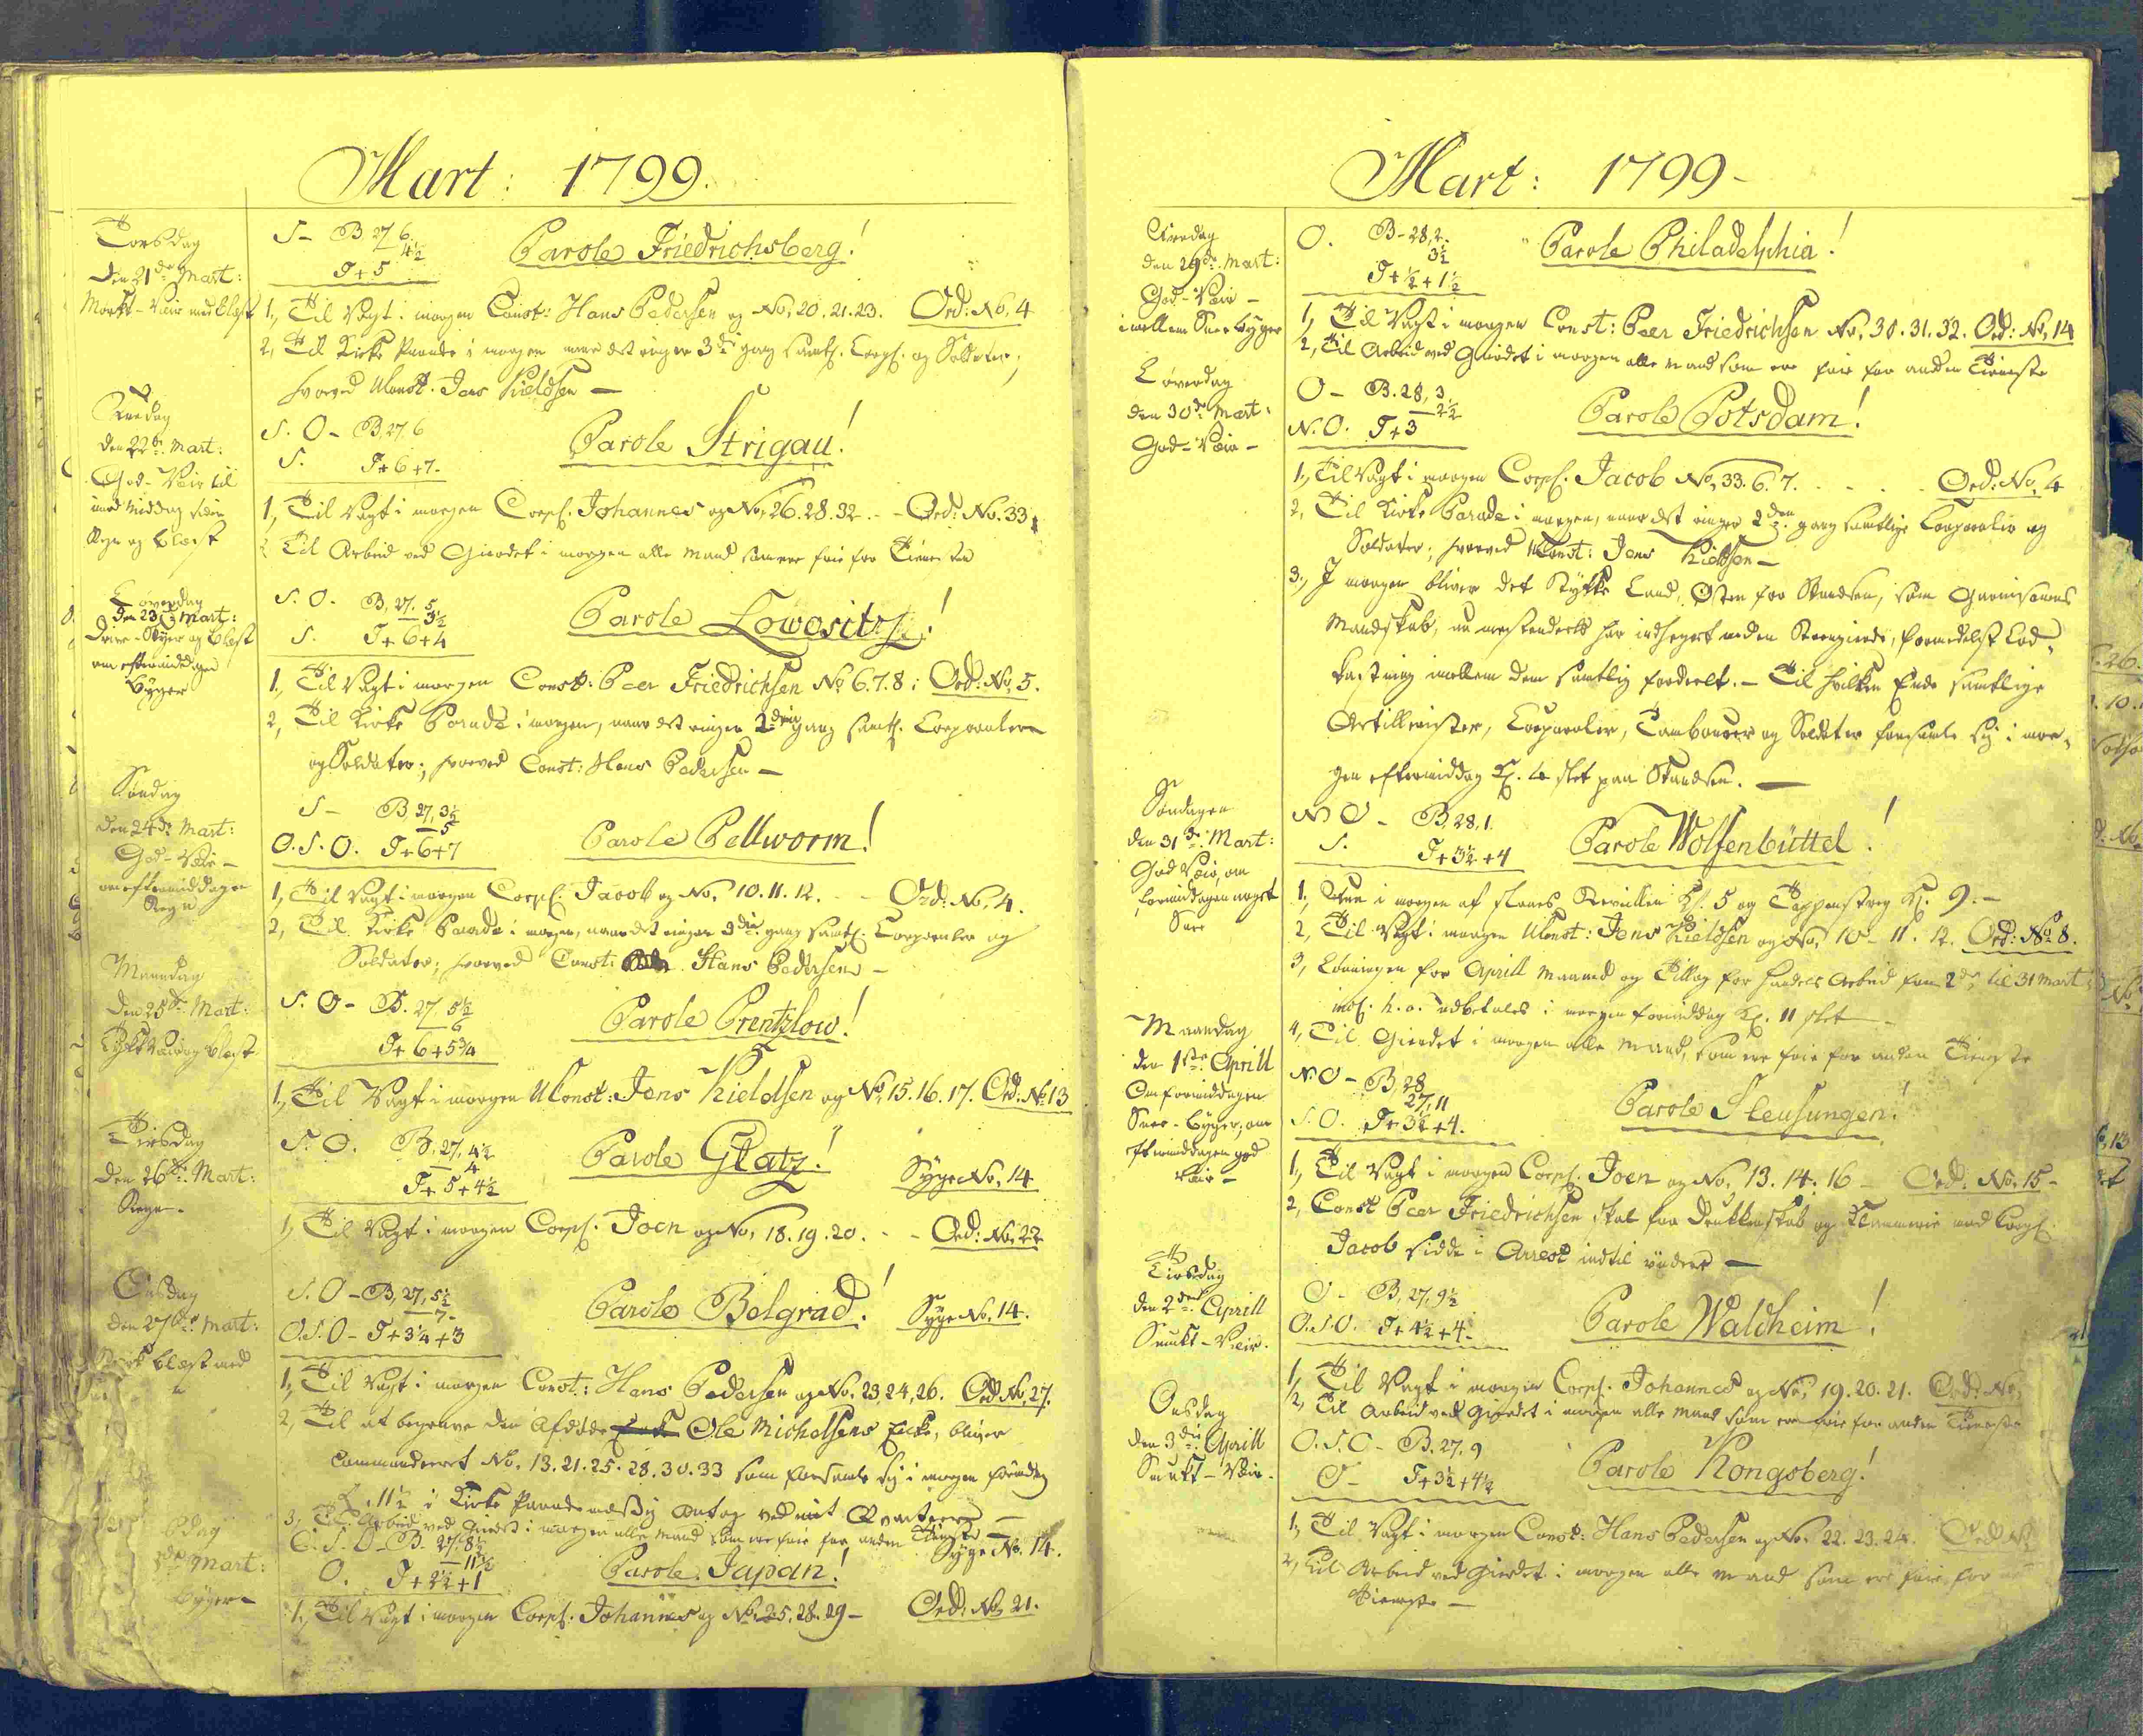 Mart: 1799.
Torsdag
den 21de Mart:
Mørkt-Veir med blæst
S- B. 27, 6
4½
T+5
Parole Friedrichsberg!
1, Til Vagt i morgen Const: Hans Pedersen og No, 20. 21. 23. Ord: No, 4
2, Til Kirke Parade i morgen naar det ringer 3de gang samtl. Corpl. og Soldater;
hvorved UConst. Jens Kieldsen —
Fredag
den 22de Mart:
God-Veir til
imod Middag siden
Regn og blæst
S. O- B, 27. 6
S. T+6+7-
Parole Strigau!
1, Til Vagt i morgen Corpl. Johannes og No, 26. 28. 32. - Ord: No. 33
2 Til Arbeid ved Gierdet i morgen alle Mand som ere frie for Tienesten
Løverdag
den 23de Mart:
Drive-Skyer og blæst
om eftermiddagen
Byger
S. O. B, 27. 5
3½
S. T+6+4
Parole Lowositz!
1, Til Vagt i morgen Const: Peer Friedrichsen No 6. 7. 8; Ord: No, 5.
2, Til Kirke Parade i morgen, naar det ringer 2den gang samtl. Corporaler
og Soldater; hvorved Const: Hans Pedersen —
Søndag
den 24de Mart:
God-Veir-
om eftermiddagen
Regn
S- B, 27, 3½
5
O. S. O. T+6+7
Parole Pellworm!
1, Til Vagt i morgen Corpl: Jacob og No, 10. 11. 12. - Ord: No, 4.
2, Til Kirke Parade i morgen, naar det ringer 3die gang samtl. Corporaler og
Soldater; hvorved Const: Hans Pedersen -
Maandag
den 25de Mart:
S. O- B. 27. 5½
6
T+6+5¾
Parole Prentzlow!
1, Til Vagt i morgen UConst: Jens Kieldsen og No, 15. 16. 17. Ord: No: 13
Tirsdag
den 26de Mart:
Regn-
S. O. B. 27, 4½
4
T+5+4½
Parole Glatz!
Syge No, 14
1, Til Vagt i morgen Corpl. Joen og No, 18. 19. 20. - Ord: No, 22
Onsdag
den 27de Mart:
blæst med
S. O-B, 27, 5½
7-
O. S. O- T+3¼+3
Parole Belgrad!
Syge No, 14.
1, Til Vagt i morgen Const: Hans Pedersen og No, 23, 24, 26. Ord No, 27.
2, Til at begrave den Afdøde Ole Michelsens Enke, bliver
Commanderet No, 13. 21. 25. 28. 30. 33 som forsamle sig i morgen formidag
Kl. 11½ i Kirke Parade mæssig Antog ved mit Qvarteer —
3, Til Arbeid ved Gierdet i morgen alle Mand som ere frie for anden Tieneste —
Mart:
Byger-
O. S. O- B. 27. 8½
11½
O. T+2½+1
Parole Japan!
Syge No. 14.
1, Til Vagt i morgen Corpl. Johannes og No, 25. 28. 29 — Ord: No, 21.
Mart: 1799-
Fredag
den 29de Mart:
God-Veir-
imellem Snee Byger
O. B-28, 2.
3½
T+½+1½
Parole Philadelphia!
1, Til Vagt i morgen Const: Peer Friedrichsen No, 30. 31. 32. Ord: No, 14
2, Til Arbeid ved Gierdet i morgen alle Mand som ere frie for anden Tieneste
Løverdag
den 30de Mart:
God-Veir-
O- B. 28, 3.
2½
N. O. T+3
Parole Potsdam!
1, Til Vagt i morgen Corpl. Jacob No, 33. 6. 7. - - - Ord: No, 4
2, Til Kirke Parade i morgen, naar det ringer 2den gang samtlige Corporaler og
Soldater; hvorved UConst: Jens Kieldsen —
3, I morgen bliver det Stykke Land, Østen for Skandsen, som Garnisonens
Mandskab, nu mestendeels har indhegnet med en Steengierde, formedelst Lod-
kastning imellem dem samtlig fordeelt. - Til hvilken Ende samtlige
Artillerister, Corporaler, Tambourer og Soldater forsamle sig i mor-
gen eftermiddag Kl. 4 slet paa Skandsen. —
Søndagen
den 31de Mart:
God Veir, om
formiddagen noget
Snee
N O- B, 28, 1.
S. T+3½+4
Parole Wolfenbüttel!
1, Fra i morgen af slaaes Revellien Kl. 5 og Tappenstreg Kl. 9. -
2, Til Vagt i morgen UConst: Jens Kieldsen og No, 10-11. 12. Ord: No 8.
3, Lønningen for Aprill Maaned og Tillæg for Arbeid fra 2de til 31 Mart
incl. h. a. udbetales i morgen formiddag Kl. 11 slet -
4, Til Gierdet i morgen alle Mand, som ere frie for anden Tieneste
Maandag
den 1ste Aprill
Om formiddagen
Snee-Byger; om
eftermiddagen god
Veir-
N. O- B, 28
27, 11
S. O. T+3½+4.
Parole Steusungen!
1, Til Vagt i morgen Corpl. Joen og No, 13. 14. 16 - Ord: No, 15-
2, Const Peer Friedrichsen skal for Drukkenskab og Klammerie med Corpl.
Jacob sidde i Arrest indtil videre —
Tirsdag
den 2den Aprill
Smukt-Veir.
O- B, 27, 9½
O. S. O. T+4½+4-
Parole Waldheim!
1, Til Vagt i morgen Corpl. Johannes og No, 19. 20. 21. Ord: No,
2, Til Arbeid ved Gierdet i morgen alle Mand som ere frie for anden Tieneste
Onsdag
den 3die Aprill
Smukt-Veir.
O. S. O- B. 27. 9
O- T+3½+4½
Parole Kongsberg!
1, Til Vagt i morgen Const: Hans Pedersen og No, 22. 23. 24. Ord: No
2, Til Arbeid ved Gierdet i morgen alle Mand som ere frie for
Tieneste —